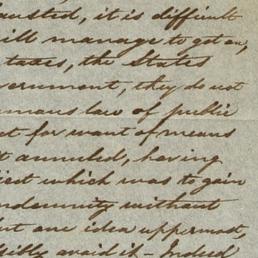 hausted, it is difficult
will manage to get on,
taxes, the States
vernment, they do not
law of public
ct for want of means
t annuled, having
which was to gain
ndemnity without
but one idea uppermost,
ssibly avoid it - Indeed